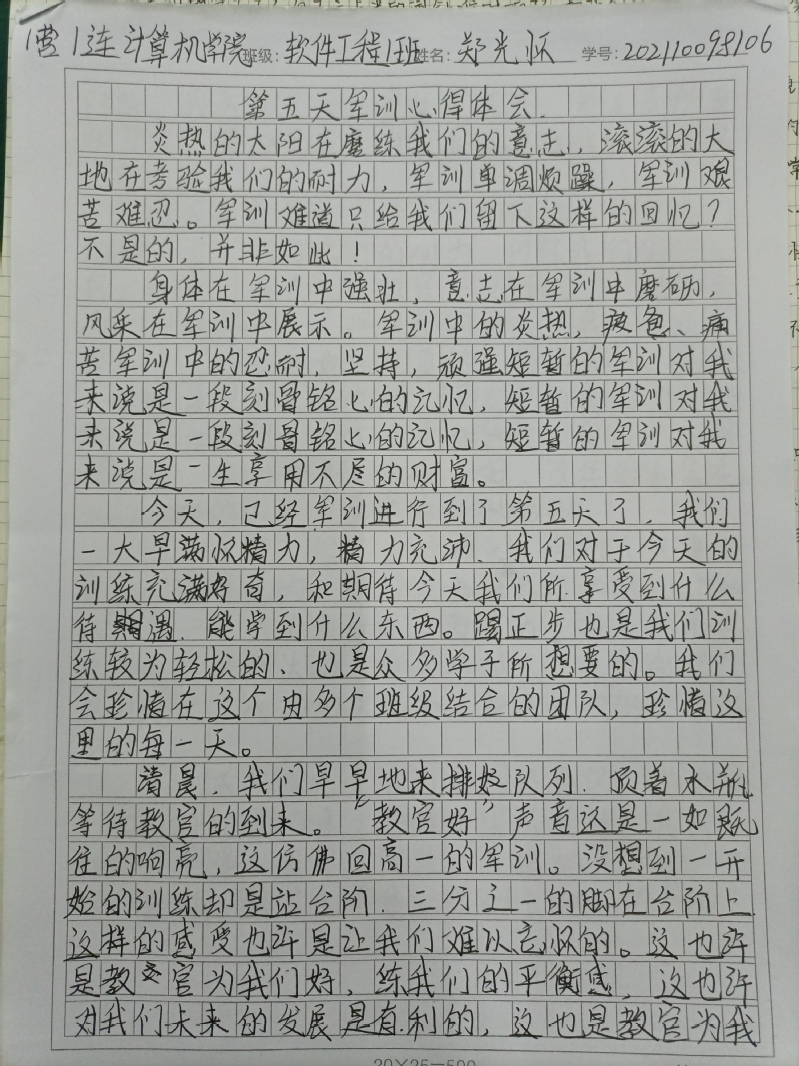 1营1连计算机学院班级:软件工程1班姓名:郑光怀 学号:202110098106
第五天军训心得体会.
炎热的太阳在磨练我们的意志,滚滚的大
地在考验我们的耐力,军训单调烦躁,军训艰
苦难忍。军训难道只给我们留下这样的回忆?
不是的,并非如此!
身体在军训中强壮,意志在军训中磨砺,
风采在军训中展示。军训中的炎热,疲惫、痛
苦军训中的忍耐,坚持,顽强短暂的军训对我
来说是一段刻骨铭心的记忆,短暂的军训对我
来说是一段刻骨铭心的记忆,短暂的军训对我
来说是一生享用不尽的财富。
今天,已经军训进行到了第五天了,我们
一大早满怀精力,精力充沛.我们对于今天的
训练充满好奇,和期待今天我们所享受到什么
待遇.能学到什么东西。踢正步也是我们训
练较为轻松的、也是众多学子所想要的。我们
会珍惜在这个由多个班级结合的团队,珍惜这
里的每一天。
清晨,我们早早地来排好队列.顶着水瓶
等待教官的到来。“教官好”声音还是一如既
往的响亮,这仿佛回高一的军训。没想到一开
始的训练却是站台阶.三分之一的脚在台阶上
这样的感受也许是让我们难以忘怀的。这也许
是教官为我们好,练我们的平衡感,这也许
对我们未来的发展是有利的,这也是教官为我
20×25=500